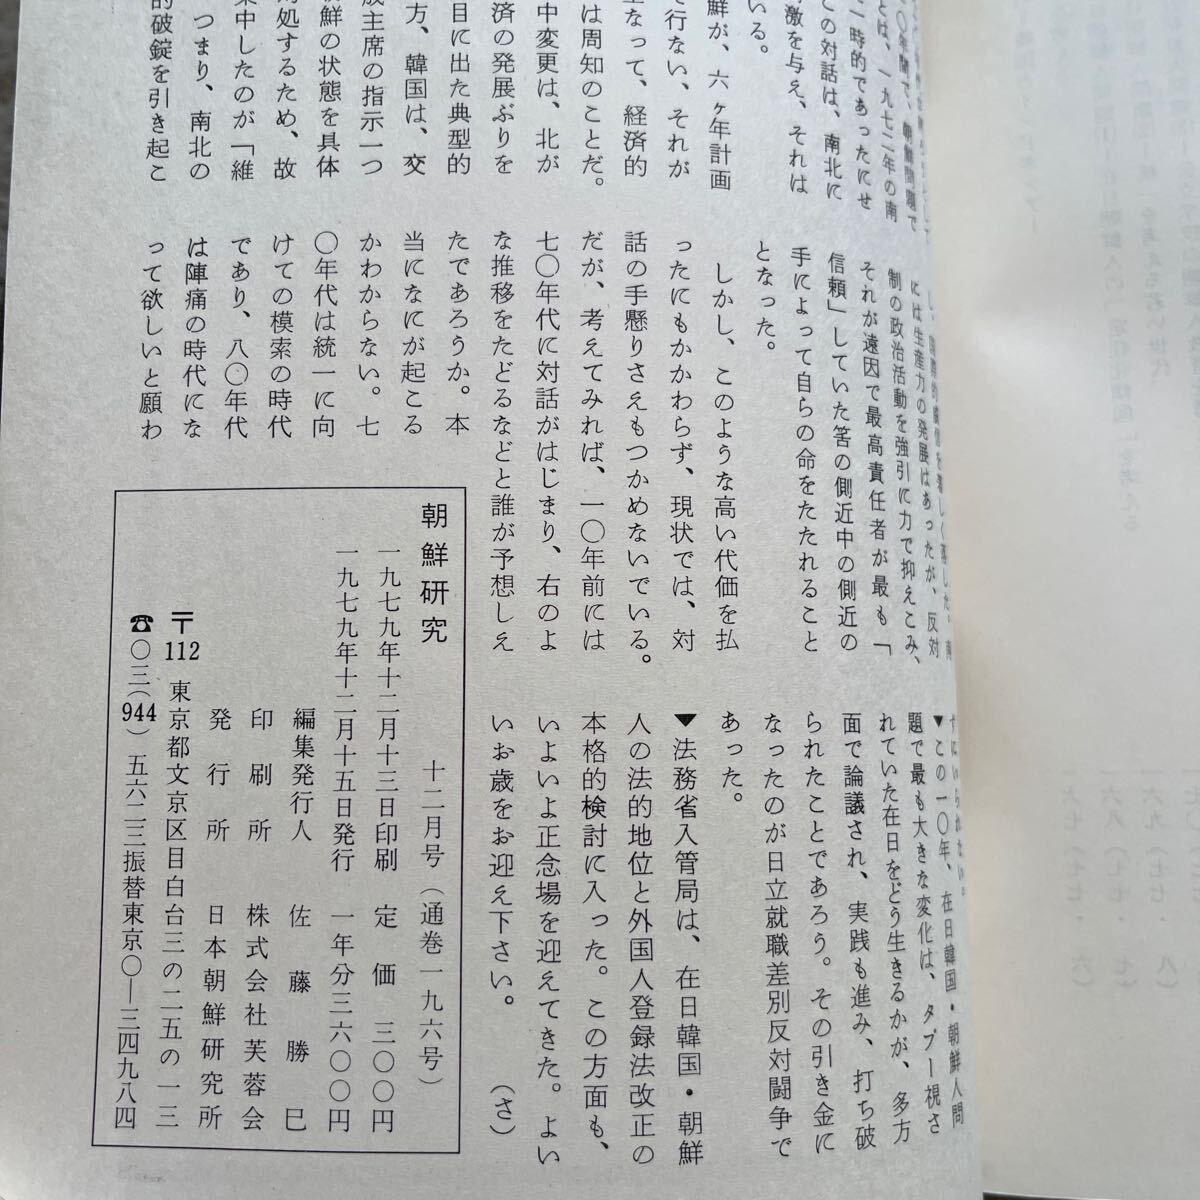 〇年間で、朝鮮問題で
とは、一九七二年の南
一時的であったにせ
この対話は、南北に
激を与え、それは
いる。
鮮が、六ヶ年計画
を行ない、それが
なって、経済的
は周知のことだ。
中変更は、北が
済の発展ぶりを
目に出た典型的
方、韓国は、交
成主席の指示一つ
朝鮮の状態を具体
処するため、故
集中したのが「維
つまり、南北の
的破錠を引き起こ
には生産力の発展はあったが、反対
制の政治活動を強引に力で抑えこみ、
それが遠因で最高責任者が最も「
信頼」していた筈の側近中の側近の
手によって自らの命をたたれること
となった。
しかし、このような高い代価を払
ったにもかかわらず、現状では、対
話の手懸りさえもつかめないでいる。
だが、考えてみれば、一〇年前には
七〇年代に対話がはじまり、右のよ
な推移をたどるなどと誰が予想しえ
たであろうか。本
当になにが起こる
かわからない。七
〇年代は統一に向
けての模索の時代
であり、八〇年代
は陣痛の時代にな
って欲しいと願わ
ずにいられない。
▼この一〇年、在日韓国・朝鮮人問
題で最も大きな変化は、タブー視さ
れていた在日をどう生きるかが、多方
面で論議され、実践も進み、打ち破
られたことであろう。その引き金に
なったのが日立就職差別反対闘争で
あった。
▼法務省入管局は、在日韓国・朝鮮
人の法的地位と外国人登録法改正の
本格的検討に入った。この方面も、
いよいよ正念場を迎えてきた。よい
いお歳をお迎え下さい。（さ）
朝鮮研究 十二月号（通巻一九六号）
一九七九年十二月十三日印刷 定価 三〇〇円
一九七九年十二月十五日発行 一年分三六〇〇円
編集発行人 佐藤勝巳
印刷所 株式会社芙蓉会
発行所 日本朝鮮研究所
〒112 東京都文京区目白台三の二五の一三
☎〇三(944)五六二三振替東京〇―三四九八四